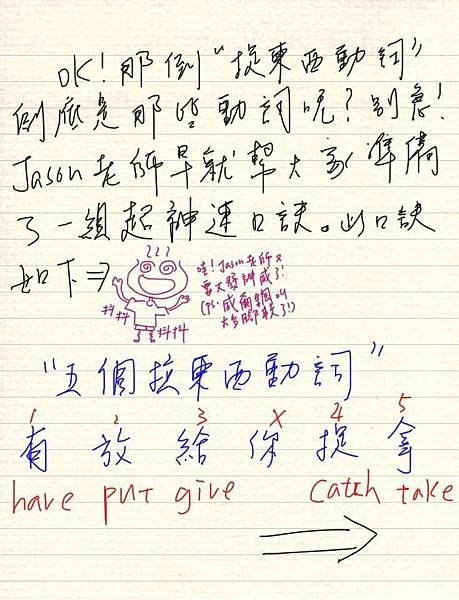 OK!那倒"捉東西動詞"
倒底是那些動詞呢?別急!
Jason老師早就幫大家準備
了一組超神速口訣。此口訣
如下⇒
???
哇!Jason老師又
要大發神威了!
(PS.威爾鋼叫
腳軟了!)
抖抖 抖抖
"五個捉東西動詞"
1 2 3 X 4 5
有 放 給 你 捉 拿
have put give catch take